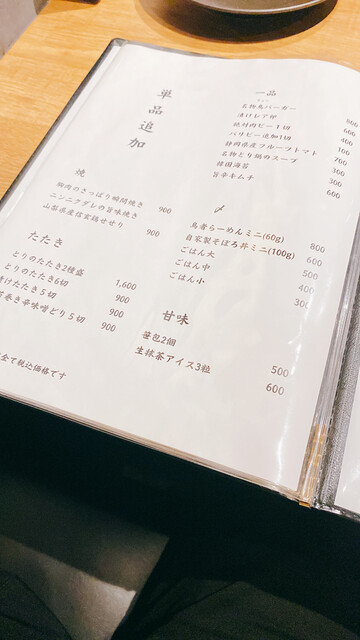 単品追加
一品
名物鳥バーガー 800
漬けレア卵 600
絶対肉ビー1切 400
バリピー追加1切 100
静岡県産フルーツトマト 700
名物とり鍋のスープ 600
韓国海苔 300
旨辛キムチ 600
焼
胸肉のさっぱり瞬間焼き 900
ニンニクダレの旨味焼き
山梨県産信玄鶏せせり 900
〆
鳥者らーめんミニ(60g) 800
自家製そぼろ丼ミニ(100g) 600
ごはん大 500
ごはん中 400
ごはん小 300
たたき
とりのたたき2種盛 1,600
とりのたたき6切 900
漬けたたき5切 900
巻き辛味噌どり5切 900
甘味
笹包2個 500
生抹茶アイス3粒 600
全て税込価格です